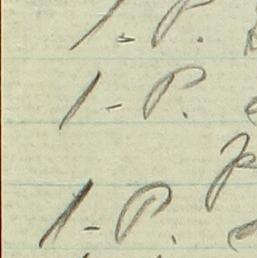 1-P.
1-P.
1-P.